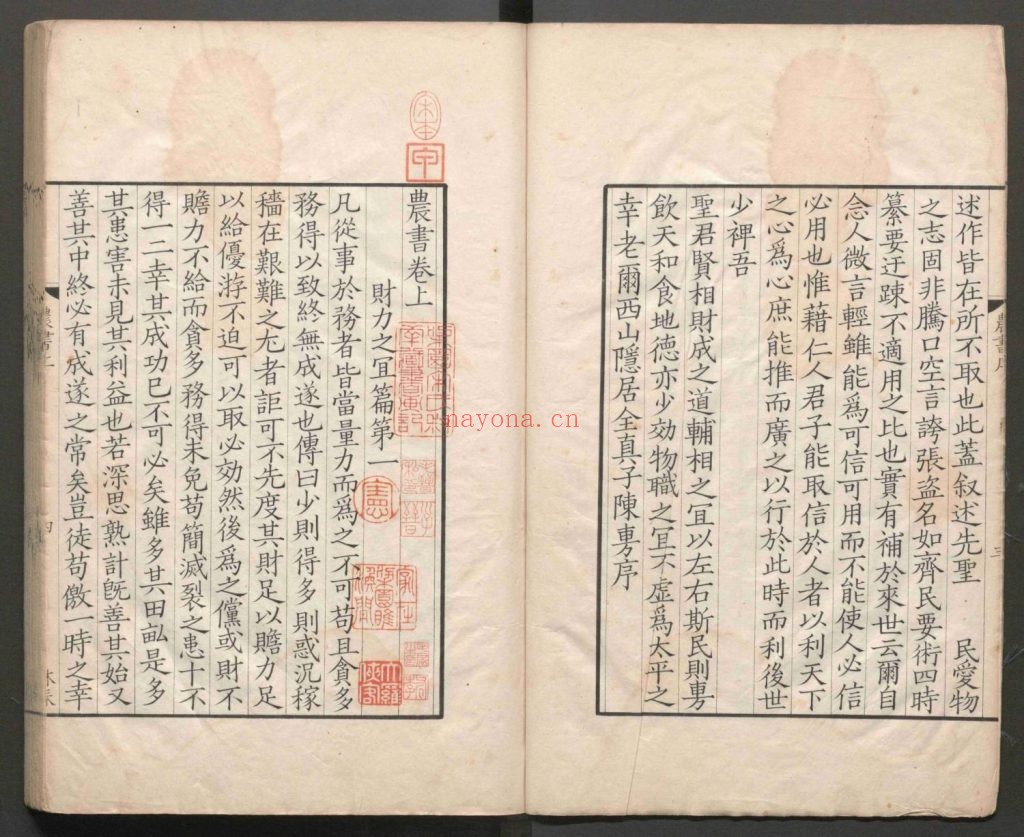 述作皆在所不取也此蓋叙述先聖 民愛物
之志固非騰口空言誇張盗名如齊民要術四時
纂要迂踈不適用之比也實有補於來世云爾自
念人微言輕雖能爲可信可用而不能使人必信
必用也惟藉仁人君子能取信於人者以利天下
之心爲心庶能推而廣之以行於此時而利後世
少裨吾
聖君賢相財成之道輔相之冝以左右斯民則旉
飲天和食地德亦少効物職之冝不虚爲太平之
幸老爾西山隱居全真子陳旉序
三
農書卷上
財力之冝篇第一
凡從事於務者皆當量力而爲之不可苟且貪多
務得以致終無成遂也傳曰少則得多則惑況稼
穡在艱難之尤者詎可不先度其財足以贍力足
以給優游不迫可以取必効然後爲之儻或財不
贍力不給而貪多務得未免苟簡滅裂之患十不
得一二幸其成功已不可必矣雖多其田畝是多
其患害未見其利益也若深思熟計旣善其始又
善其中終必有成遂之常矣豈徒苟徼一時之幸
農書上
四
憲
nayona.cn